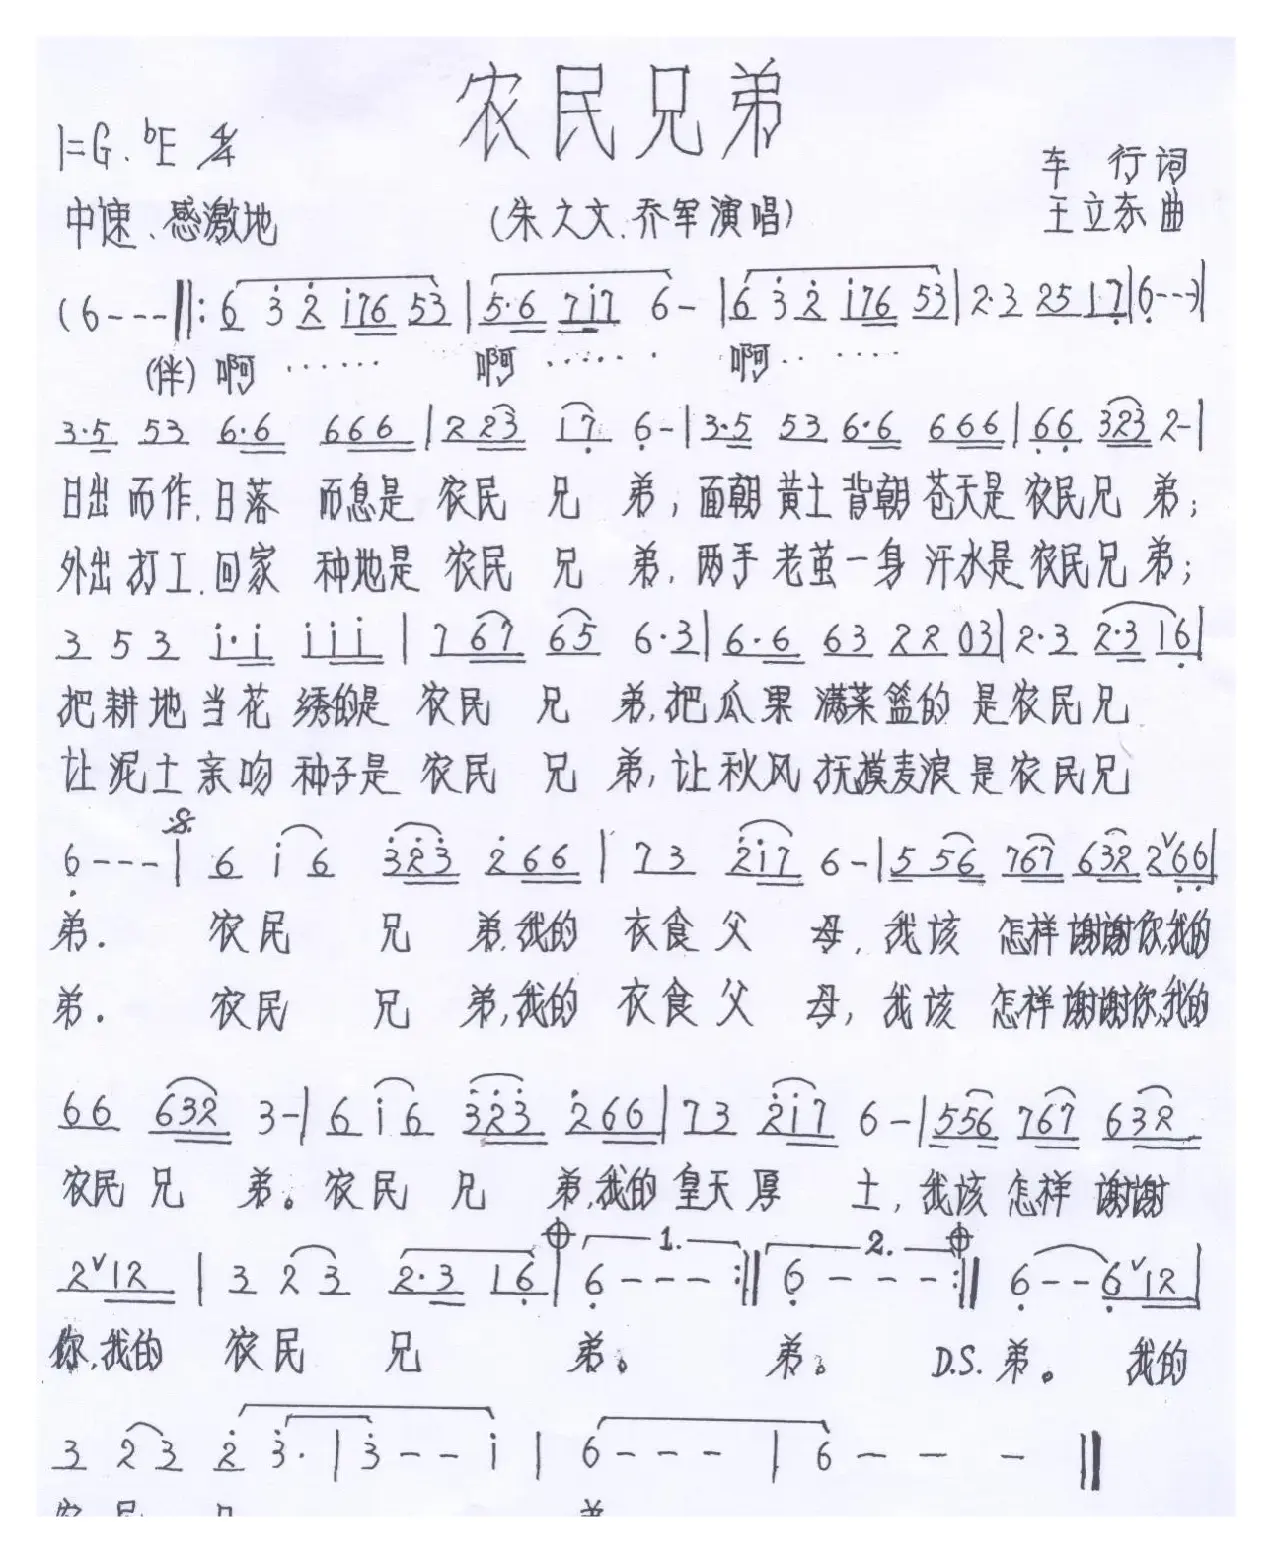 农民兄弟
1=G. ♭E 4/4
车 行词
中速、感激地
(朱之文.乔军演唱)
王立东曲
(6---‖: 6 3̇ 2̇ i76 53 | 5·6 7i7 6- | 6 3̇ 2̇ i76 53 | 2·3 25 17̣ | 6̣---) |
(伴) 啊 …… 啊 …… 啊 ……
3·5 53 6·6 666 | 2 23 17̣ 6̣- | 3·5 53 6·6 666 | 6̣6̣ 323 2- |
日出而作.日落 而息是 农民 兄 弟; 面朝黄土背朝苍天是农民兄 弟;
外出打工.回家 种地是 农民 兄 弟, 两手老茧一身汗水是农民兄弟;
3 5 3 i·i iii | 7 67 65 6·3 | 6·6 63 22 03 | 2·3 2·3 16̣ |
把耕地当花 绣的是 农民 兄 弟,把瓜果 满菜篮的 是农民兄
让泥土亲吻种子是 农民 兄 弟,让秋风抚摸麦浪是农民兄
6̣---| 6 i 6 3̇2̇3̇ 2̇66 | 73 2̇i7 6- | 5 56 767 632 2ˇ6̣6̣ |
弟. 农民 兄 弟,我的 衣食父 母, 我该 怎样谢谢你,我的
弟. 农民 兄 弟,我的 衣食父 母, 我该 怎样谢谢你,我的
66 632 3- | 6 i 6 3̇2̇3̇ 2̇66 | 73 2̇i7 6- | 556 767 632
农民兄 弟。农民 兄 弟,我的皇天厚 土, 我该怎样谢谢
2ˇ12 | 3 2 3 2·3 16̣ | 1. 6̣---:‖ 2. 6̣---:‖ 6̣--6̣ˇ12 |
你,我的 农民 兄 弟。 弟。 D.S. 弟。 我的
3 2 3 2̇ 3̇· | 3̇--i | 6--- | 6---‖